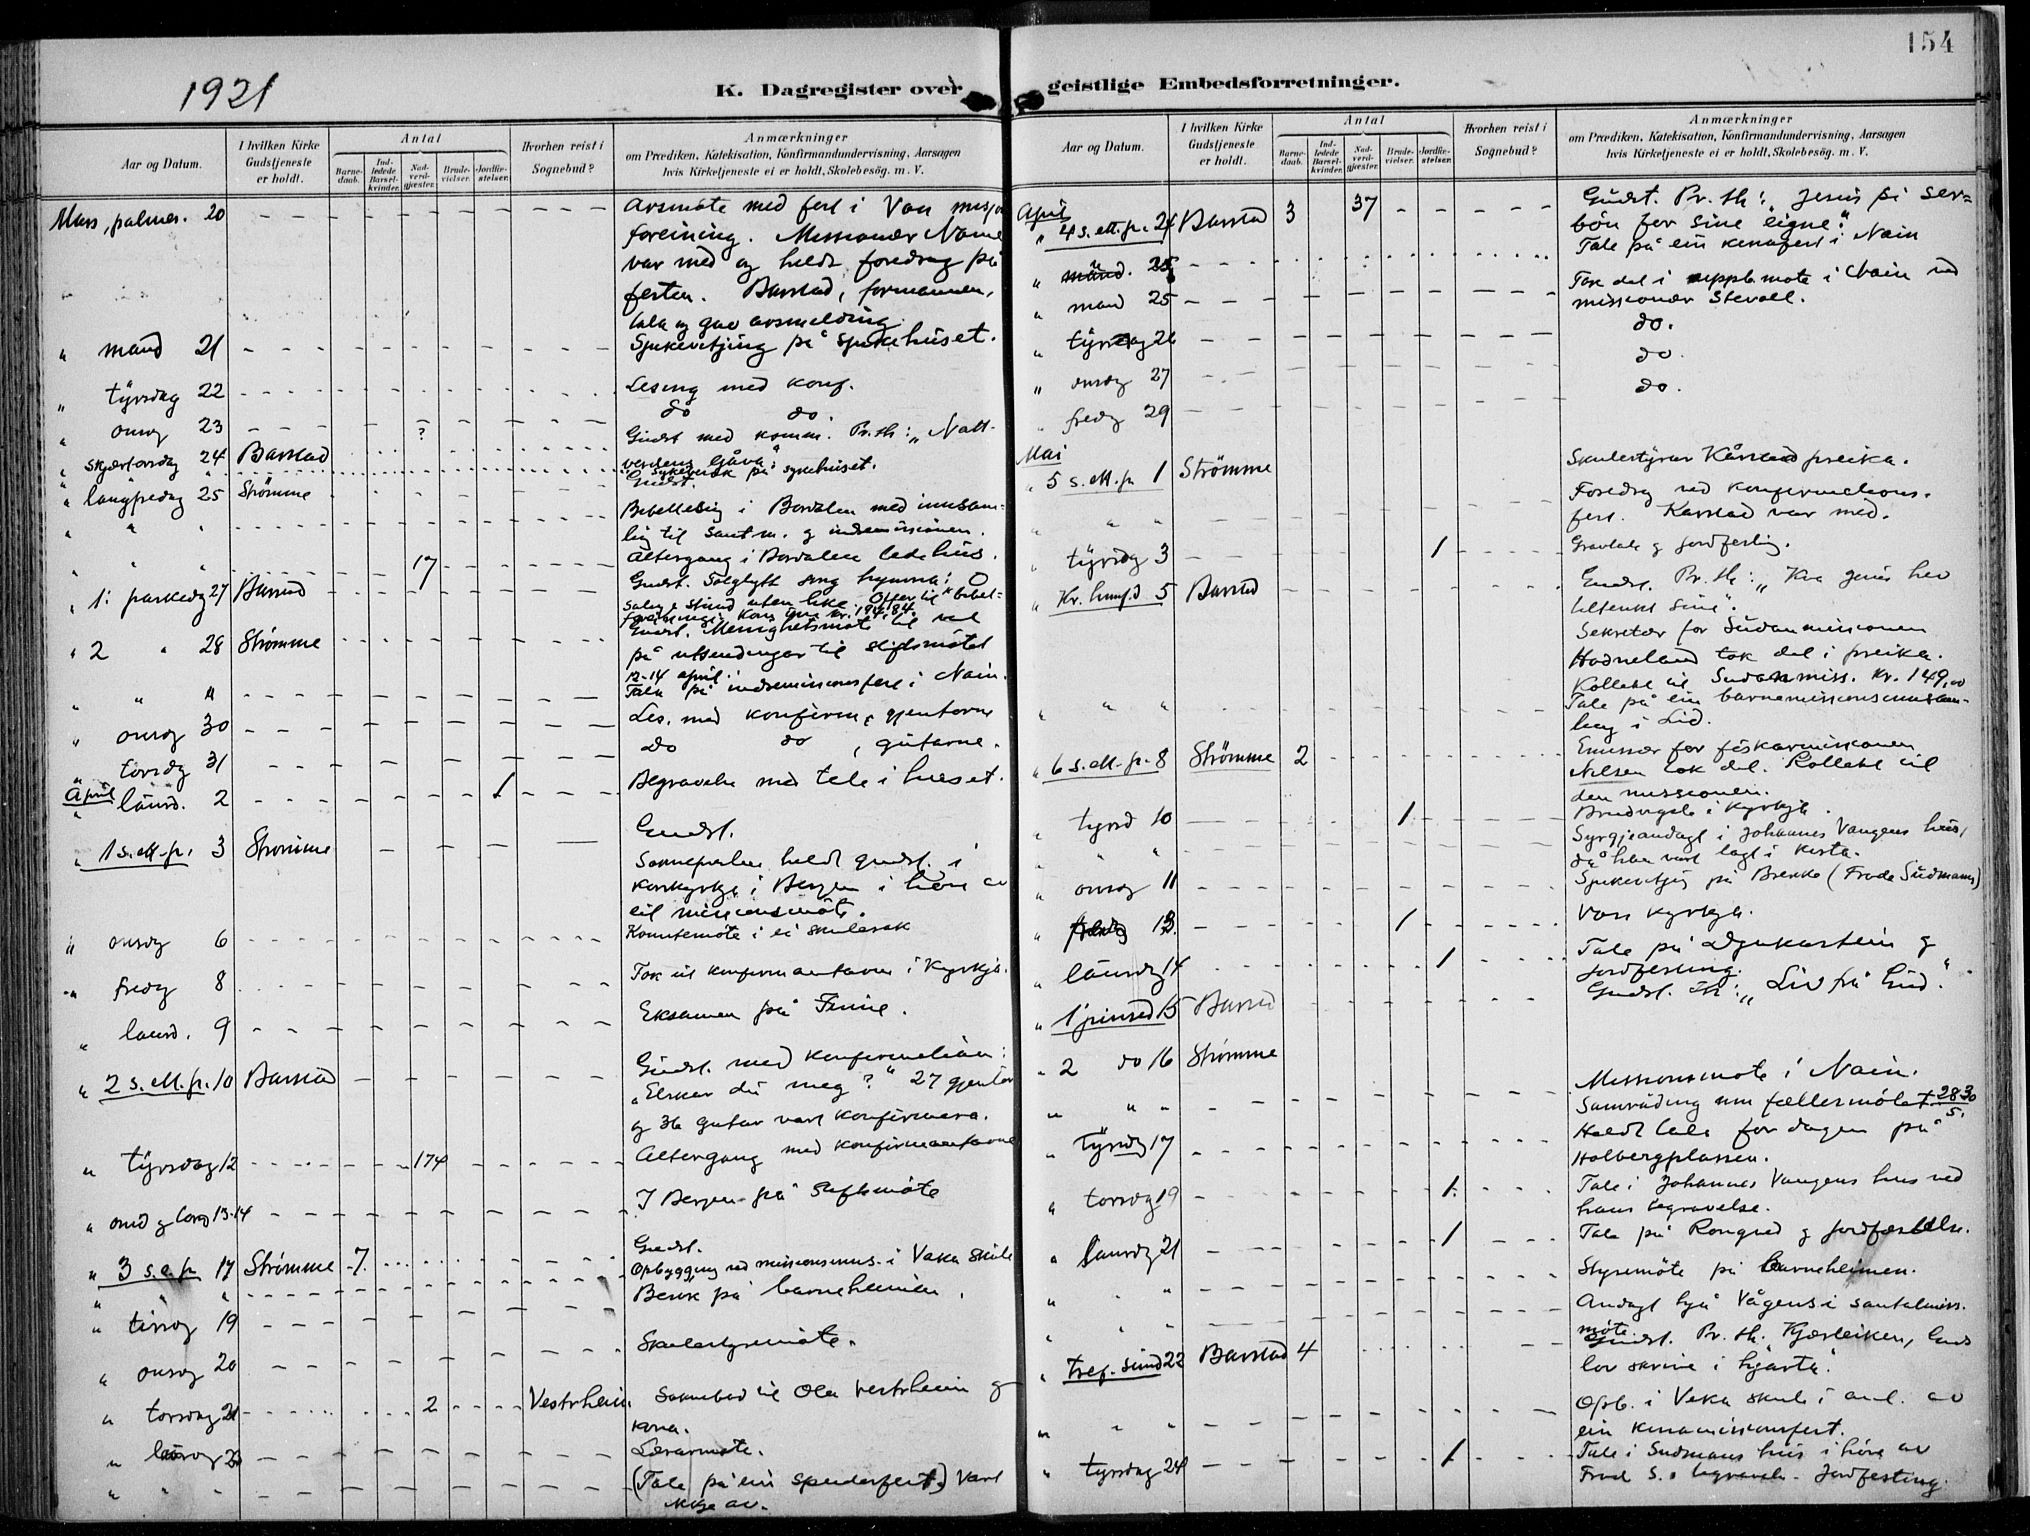 154
1921
K. Dagregister over geistlige Embedsforretninger.
Aar og Datum.
I hvilken Kirke Gudstjeneste er holdt.
Antal
Barne-daab.
Ind-ledede Barsel-kvinder.
Nad-verd-gjæster.
Brude-vielser.
Jordfæ-stelser.
Hvorhen reist i Sognebud?
Anmærkninger
om Prædiken, Katekisation, Konfirmandundervisning, Aarsagen
hvis Kirketjeneste ei er holdt, Skolebesøg. m. V.
Mars, palmes. 20
Årsmøte med fest i Voss
foreining. Missionær
var med og heldt foredrag på
festen. Barstad, formannen,
tala og gav årsmelding.
" mand 21 Sjukevitjing på sjukehuset.
" tyrsdag 22 Lesing med konf.
" onsdg 23 do do.
" skjærtorsdag 24 Barstad ? Gudst med komm. Pr. th: „Natt-
verdens Gåva"
Sykebesøk på sykehuset.
" langfredag 25 Strømme Gudst.
" " " Bibellesing i Bordalen med innsam-
ling til Sant m. og indremissionen.
" " " 17 Altergang i Bordalen bedehus.
" 1. paskedg 27 Barstad Gudst. song hymna: O
salige stund uten like. Offer til bibel-
kr. 194,84.
" 2 " 28 Strømme Gudst. Menighetsmøte til val
på utsendingar til stiftsmötet
12-14 april.
" " " Tala på indremissionsfest i Nain.
" onsdg 30 Les. med konfirm, gjentorne
" torsdg 31 do do, gutarne.
April
" laurd. 2 1 Begravelse med tale i huset.
" 1 s. ett. p. 3 Strømme Gudst.
Soknepresten heldt gudst. i
Korskyrkja i Bergen i høve av
eit missionsmøte.
" onsdg 6 Komitemøte i ei skulesak
" fredg 8 Tok ut konfirmantarne i kyrkja.
" laurd. 9 Eksamen på Finne.
" 2 s. ett. p. 10 Barstad Gudst. med konfirmation:
„Elskar du meg?" 27 gjentor
og 36 gutar vart konfirmera.
" tyrsdag 12 174 Altergang med konfirmantarne
" onsd og torsd 13-14 I Bergen på stiftsmöte
" 3 s. e. p 17 Strømme 7. Gudst.
" " " Opbygging ved missionsmus. i Veka skule
" tirsdg 19 Besøk på barneheimen.
" onsdg 20 Skulestyremöte.
" torsdag 21 2 Vestrheim Soknebod til Ola Vestrheim og
kona.
" laurdg 23 Lærarmøte.
" " " (Tale på ein spenderfest) vart
ikkje av.
Aar og Datum.
I hvilken Kirke Gudstjeneste er holdt.
Antal
Barne-daab.
Ind-ledede Barsel-kvinder.
Nad-verd-gjæster.
Brude-vielser.
Jordfæ-stelser.
Hvorhen reist i Sognebud?
Anmærkninger
om Prædiken, Katekisation, Konfirmandundervisning, Aarsagen
hvis Kirketjeneste ei er holdt, Skolebesøg. m. V.
April
" 4 s. ett. p. 24 Barstad 3 37 Gudst. Pr. th: „Jesus på ser-
bön for sine eigne."
" månd. 25 Tale på ein kinafest i Nain
" mand 25 Tok del i uppb. møte i Nain ved
missionær Stevoll.
" tyrsdag 26 do.
" onsdg 27 do.
" fredg 29 do.
Mai
" 5 s. ett. p 1 Strömme Skulestyrar Kårstad preika.
" " " Foredrag ved konfirmations-
fest. Kårstad var med.
" tyrsdg 3 1 Gravtale og jordfesting.
" Kr. himf.d 5 Barstad Gudst. Pr. th: „Kva Jesus hev
tiltenkt sine".
Sekretær for Sudanmissionen
Hodneland tok del i preika.
Kollekt til Sudanmiss. kr. 149,00
" " " Tale på ein barnemissionssamstem-
ling i Lid.
" 6 s. ett. p. 8 Strømme 2 Emissær for fiskarmissionen
Nilsen tok del. Kollekt til
den missionen.
" tyrsd 10 1 Brudvigsle i kyrkja.
" " Syrgjeandagt i Johannes Vangens hus,
då han vart lagt i kista.
" onsdg 11 Sjukevitjing på Brekke (Frode Sudmann)
" fredg 13. 1 Voss kyrkja.
" laurdg 14 1 Tale på Dyrkartein og
jordfesting.
" 1 pinsed 15 Barstad Gudst. Th: „Liv frå Gud."
" 2 do 16 Strømme
" " " Missionsmote i Nain.
" tyrsdg 17 Samråding um fellesmötet 28-30/5.
Heldt tale for dagen på
Holbergplassen.
" torsdag 19 1. Tale i Johannes Vangens hus ved
hans begravelse.
" laurdg 21 1 Tale på Rongved og jordfæstelse.
" " " Styremöte på barneheimen.
" " " Andagt hjå Vågens i santalmiss.
møte.
" tref. sund 22 Barstad 4 Gudst. Pr. th: Kjærleiken, Guds
lov skrive i hjarta."
" " " Opb. i Veka skule i anl. av
ein kinamissionsfest.
" tyrsdag 24 1 Tale i Sudmanns hus i høve av
Frod S.s begravels. Jordfesting.